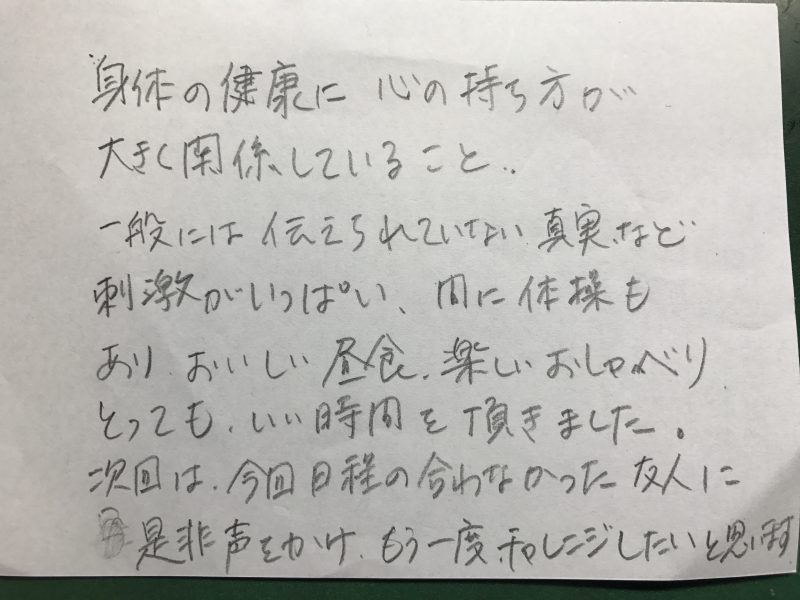 身体の健康に 心の持ち方が
大きく関係していること、
一般には伝えられていない真実など
刺激がいっぱい、間に体操も
あり おいしい昼食、楽しいおしゃべり
とっても、いい時間を頂きました。
次回は、今回日程の合わなかった友人に
是非声をかけ、もう一度チャレンジしたいと思います